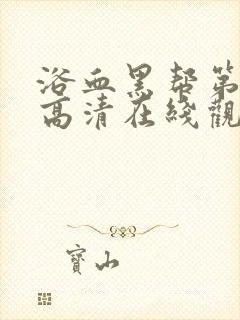 浴血黑帮第
高清在线觀
寶山